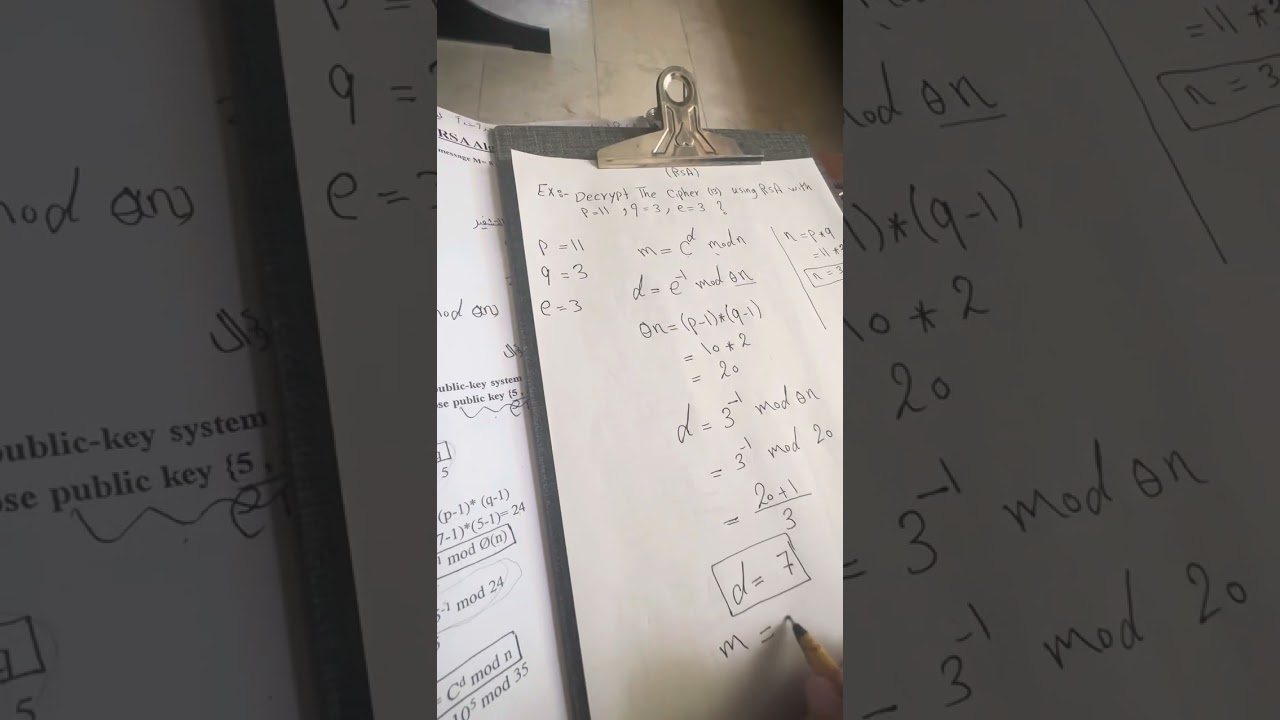 (RSA)
Ex:- Decrypt The Cipher using RSA with
p=11 , q=3 , e=3 ?
p = 11
q = 3
e = 3
m = C^d mod n
d = e^-1 mod θn
θn = (p-1)*(q-1)
= 10 * 2
= 20
d = 3^-1 mod θn
= 3^-1 mod 20
= 20+1
3
d = 7
m =
n = p*q
= 11*
n = 3
RSA Al
message M=
ublic-key system
se public key {5
5
(p-1)* (q-1)
7-1)*(5-1)= 24
mod Ø(n)
-1 mod 24
= C^d mod n
10^5 mod 35
q =
e =
mod θn
public-key system
ose public key {5 ,
5
= 11 *
n = 3
mod θn
)*(q-1)
10 * 2
20
3^-1 mod θn
= 3^-1 mod 20